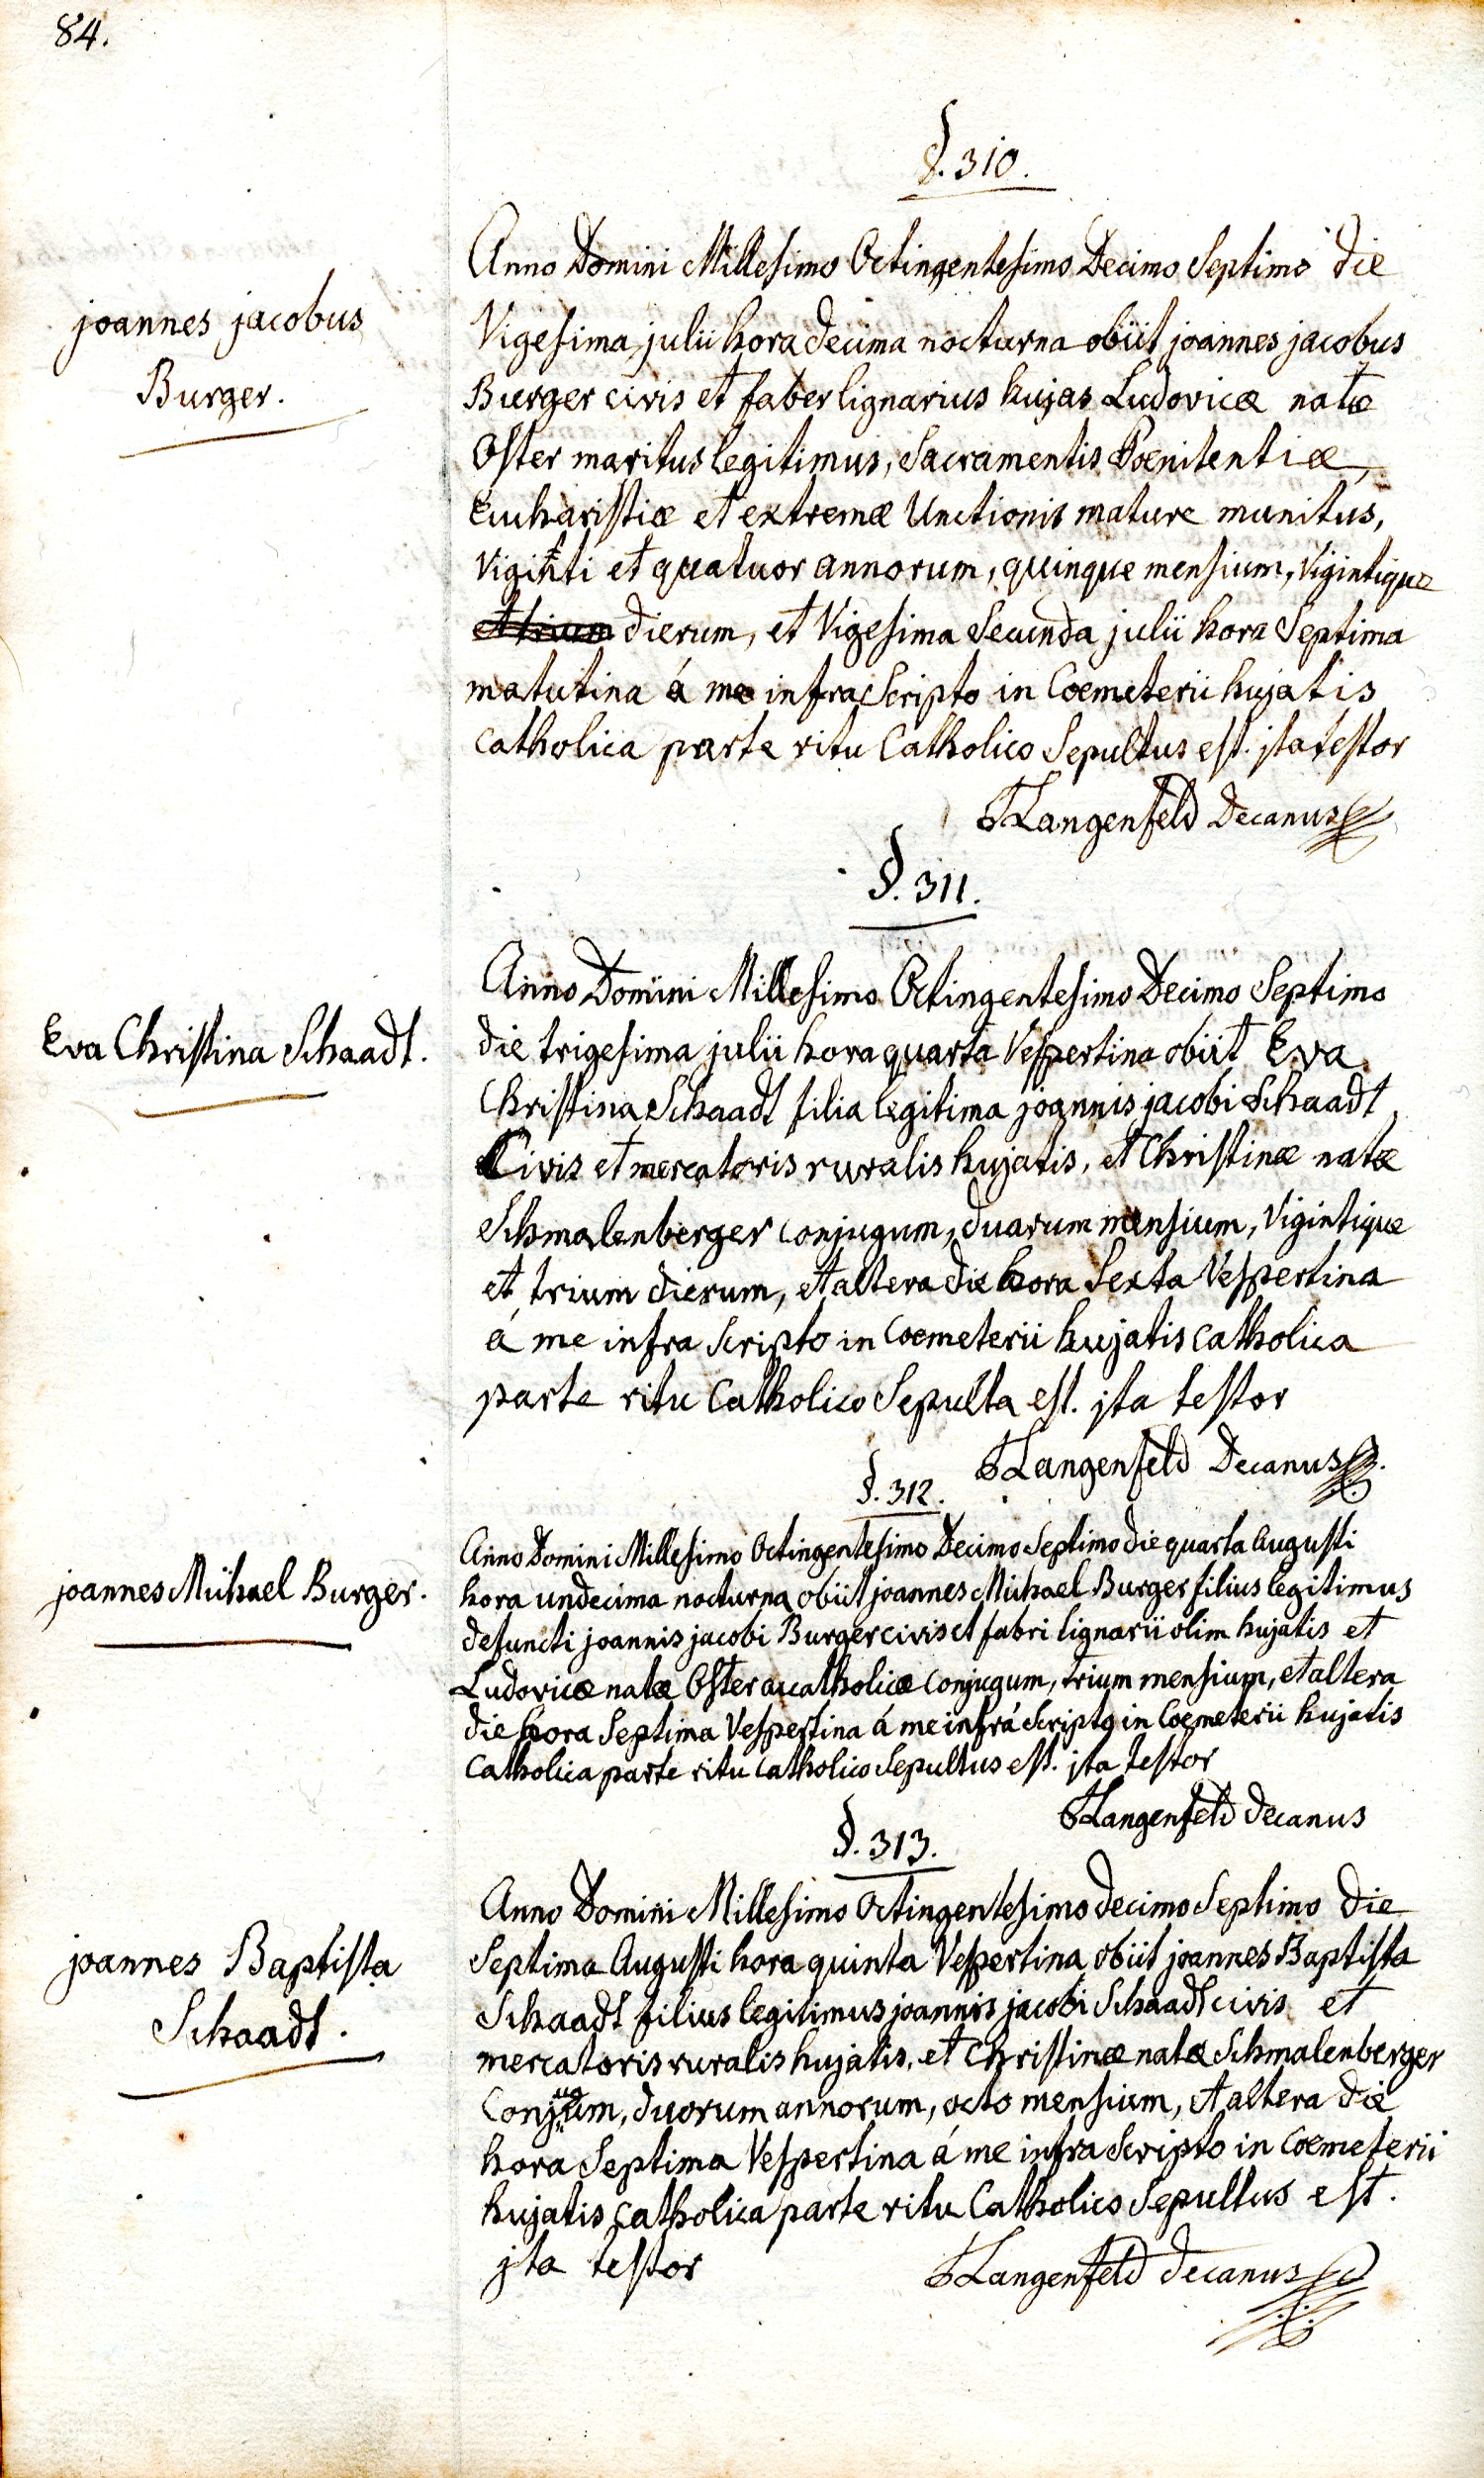 84.
§. 310.
joannes jacobus
Burger.
Anno Domini Millesimo Octingentesimo Decimo Septimo die
Vigesima julii hora decima nocturna obiit joannes jacobus
Burger civis et faber lignarius hujas Ludovicæ natæ
Oster maritus legitimus, Sacramentis Poenitentiæ,
Eucharistiæ et extremæ Unctionis mature munitus,
Viginti et quatuor annorum, quinque mensium, Vigintique
et trium dierum, et Vigesima Secunda julii hora Septima
matutina á me infra Scripto in Coemeterii hujatis
catholica parte ritu Catholico Sepultus est. jta testor
Langenfeld Decanus
§. 311.
Eva Christina Schaadt.
Anno Domini Millesimo Octingentesimo Decimo Septimo
die trigesima julii hora quarta Vespertina obiit Eva
Christina Schaadt filia legitima joannis jacobi Schaadt
Civis et mercatoris ruralis hujatis, et Christinæ natæ
Schmalenberger conjugum, duarum mensium, Vigintique
et trium dierum, et altera die hora Sexta Vespertina
á me infra Scripto in Coemeterii hujatis catholica
parte ritu Catholico Sepulta est. jta testor
Langenfeld Decanus
§. 312.
joannes Michael Burger.
Anno Domini Millesimo Octingentesimo Decimo Septimo die quarta Augusti
hora undecima nocturna obiit joannes Michael Burger filius legitimus
defuncti joannis jacobi Burger civis et fabri lignarii olim hujatis et
Ludovicæ natæ Oster acatholicæ conjugum, trium mensium, et altera
die hora Septima Vespertina á me infrá Scripto in Coemeterii hujatis
Catholica parte ritu catholico Sepultus est. jta testor
Langenfeld Decanus
§. 313.
joannes Baptista
Schaadt.
Anno Domini Millesimo Octingentesimo decimo Septimo die
Septima Augusti hora quinta Vespertina obiit joannes Baptista
Schaadt filius legitimus joannis jacobi Schaadt civis et
mercatoris ruralis hujatis, et Christinæ natæ Schmalenberger
Conjugum, duorum annorum, octo mensium, et altera die
hora Septima Vespertina á me infra Scripto in Coemeterii
hujatis catholica parte ritu Catholico Sepultus est.
jta testor
Langenfeld decanus